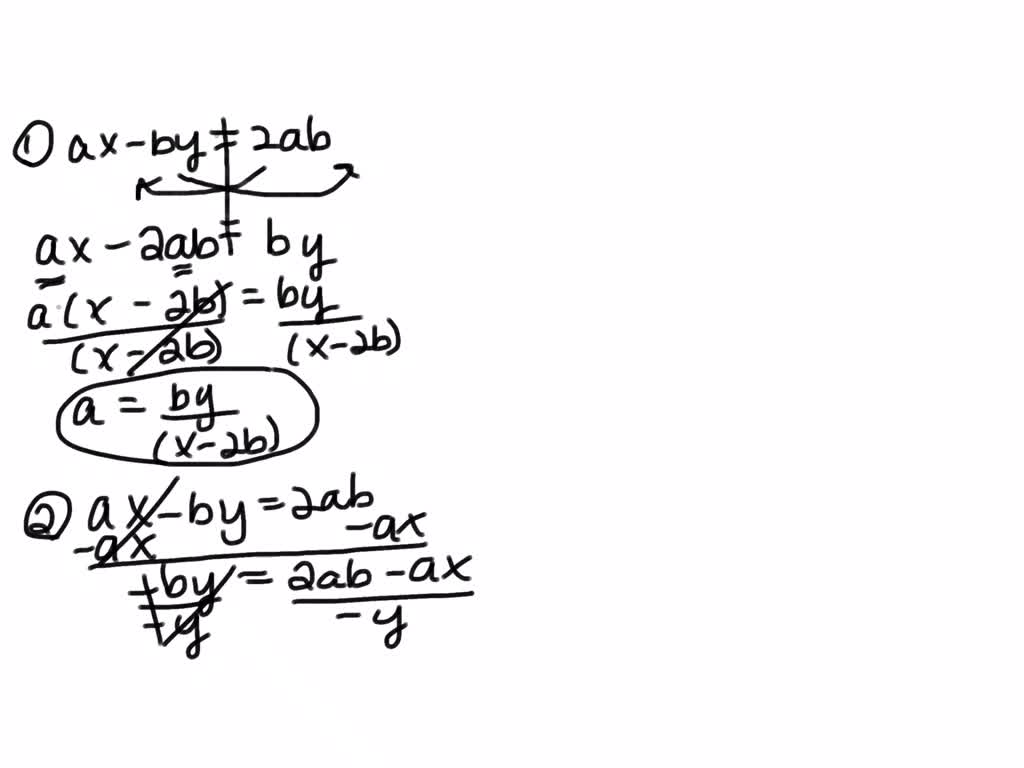 ① ax - by = 2ab
ax - 2ab = by
a · (x - 2b) = by
(x - 2b) (x - 2b)
a = by
(x - 2b)
② ax - by = 2ab
-ax -ax
-by = 2ab - ax
-y -y